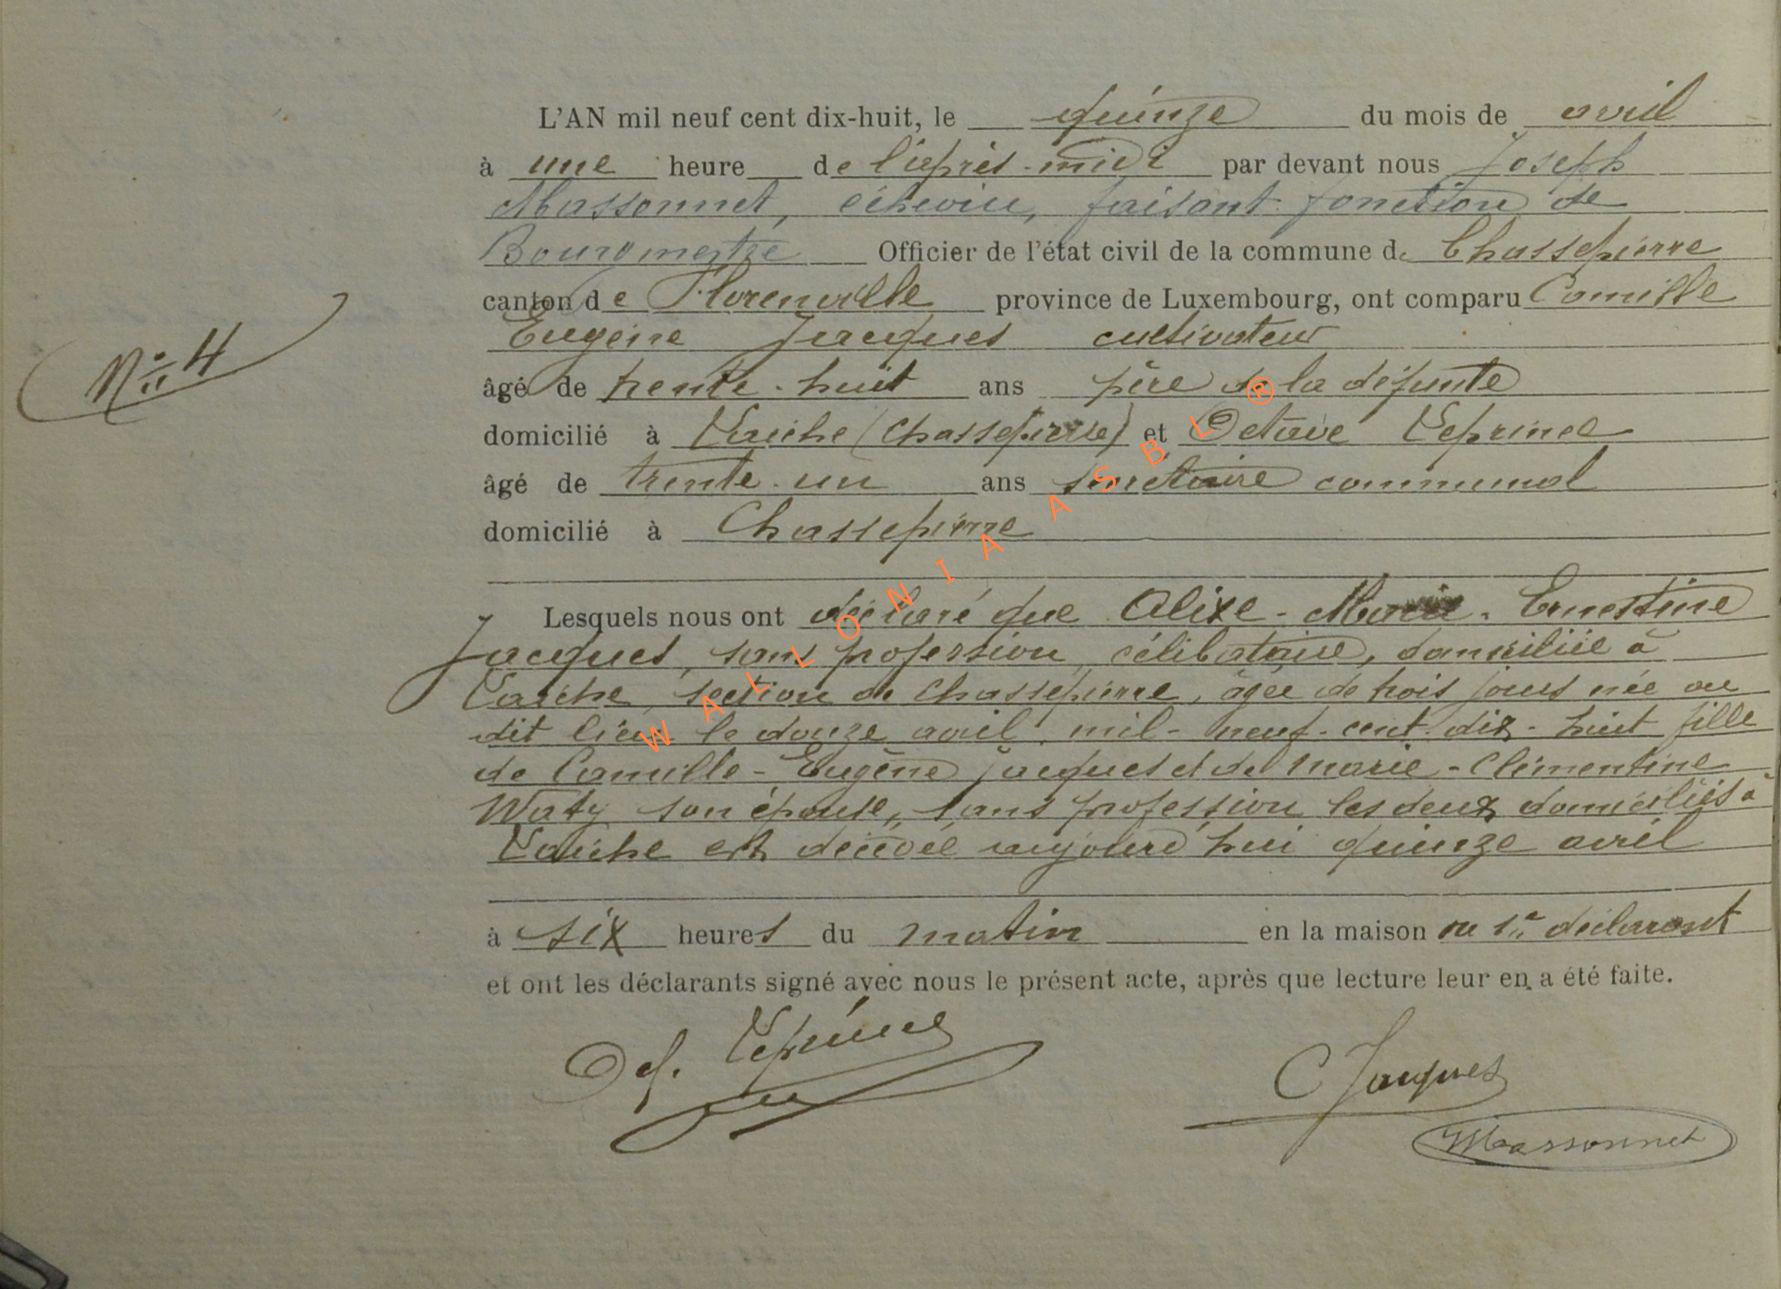 L'AN mil neuf cent dix-huit, le quinze du mois de avril
à une heure de l'après-midi par devant nous Joseph
Massonnet, échevin, faisant fonction de
Bourgmestre Officier de l'état civil de la commune de Chassepierre
canton de Florenville province de Luxembourg, ont comparu Camille
Eugène Jacques cultivateur
N° 4
âgé de trente-huit ans père de la défunte
domicilié à Laiche (Chassepierre) et Octave Leprince
âgé de trente-un ans secrétaire communal
domicilié à Chassepierre
Lesquels nous ont déclaré que Alixe-Maria-Ernestine
Jacques, sans profession, célibataire, domiciliée à
Laiche, section de Chassepierre, âgée de trois jours née au
dit lieu le douze avril mil-neuf-cent-dix-huit fille
de Camille-Eugène Jacques et de Marie-Clémentine
Waty son épouse, sans profession les deux domiciliés à
Laiche est décédée aujourd'hui quinze avril
à six heures du matin en la maison du 1er déclarant
et ont les déclarants signé avec nous le présent acte, après que lecture leur en a été faite.
Oct. Leprince
C Jacques
Massonnet
WALLONIA ASBL ®